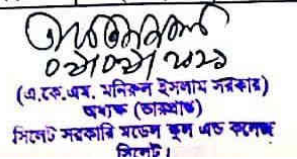 (এ.কে.এম. মনিরুল ইসলাম সরকার)
অধ্যক্ষ (ভারপ্রাপ্ত)
সিলেট সরকারি মডেল স্কুল এন্ড কলেজ
সিলেট।